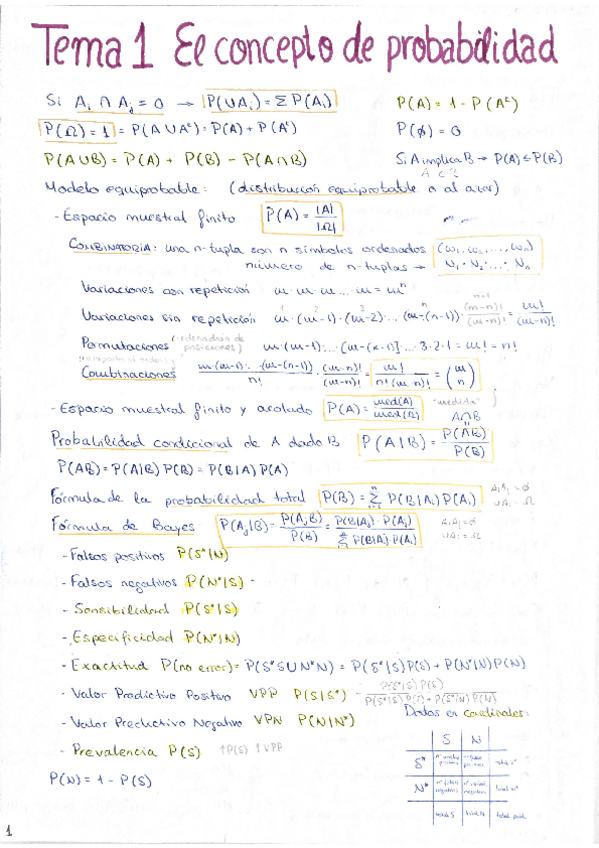 Tema 1 El concepto de probabilidad
Si Ai ∩ Aj = ∅ → P(∪Ai) = Σ P(Ai)   P(A) = 1 - P(Aᶜ)
P(Ω) = 1 = P(A∪Aᶜ) = P(A) + P(Aᶜ)   P(∅) = 0
P(A∪B) = P(A) + P(B) - P(A∩B)   Si A implica B → P(A) ≤ P(B)
A ⊂ B
Modelo equiprobable: (distribución equiprobable o al azar)
- Espacio muestral finito   P(A) = |A| / |Ω|
COMBINATORIA: una n-tupla son n símbolos ordenados (ω1, ω2, ..., ωn)
número de n-tuplas → N1 · N2 · ... · Nn
Variaciones con repetición   m · m · m ... · m = mⁿ
Variaciones sin repetición   m · (m-1) · (m-2) ... (m-(n-1)) · (m-n)! / (m-n)! = m! / (m-n)!
Permutaciones   m · (m-1) ... 3 · 2 · 1 = m! = n!
Combinaciones   m · (m-1) ... (m-(n-1)) / n! · (m-n)! / (m-n)! = m! / n!(m-n)! = (m n)
- Espacio muestral finito y acotado   P(A) = med(A) / med(Ω)   "medida"
A∩B
Probabilidad condicional de A dado B   P(A|B) = P(AB) / P(B)
P(AB) = P(A|B) P(B) = P(B|A) P(A)
Fórmula de la probabilidad total   P(B) = Σ P(B|Ai) P(Ai)   AiAj = ∅
∪Ai = Ω
Fórmula de Bayes   P(Aj|B) = P(AjB) / P(B) = P(B|Aj) · P(Aj) / Σ P(B|Ai) · P(Ai)   AiAj = ∅
∪Ai = Ω
- Falsos positivos   P(S*|N)
- Falsos negativos   P(N*|S)
- Sensibilidad   P(S*|S)
- Especificidad   P(N*|N)
- Exactitud   P(no error) = P(S*S ∪ N*N) = P(S*|S)P(S) + P(N*|N)P(N)
- Valor Predictivo Positivo   VPP   P(S|S*) = P(S*|S) P(S) / P(S*|S) P(S) + P(S*|N) P(N)
- Valor Predictivo Negativo   VPN   P(N|N*)   Datos en cardinales:
- Prevalencia   P(S)   ↑P(S) ↑VPP
P(N) = 1 - P(S)
S   N
S*   total s*
N*   total n*
total S   total N   total pobl.
1